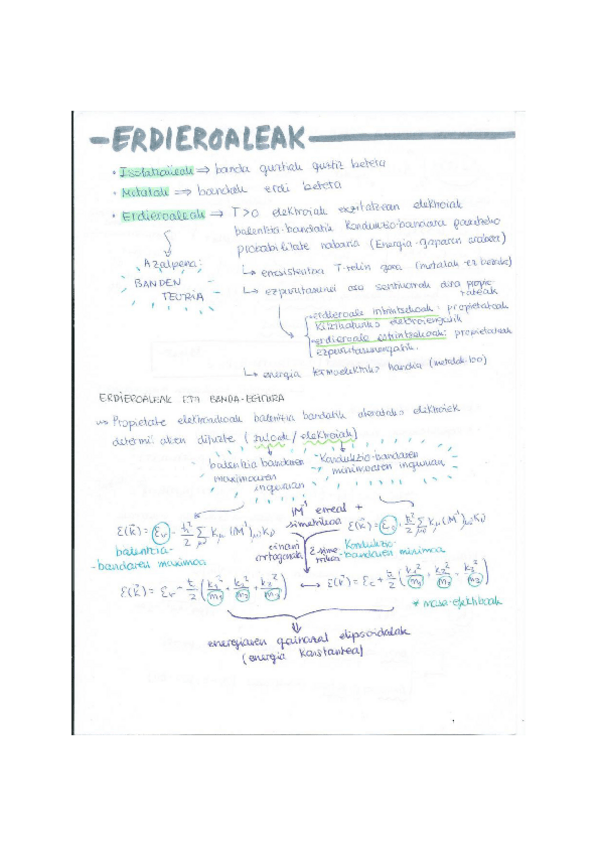 ERDIEROALEAK
• Isolatzaileak ⇒ banda guztiak guztiz beteta
• Metalak ⇒ bandak erdi beteta
• Erdieroaleak ⇒ T>0 elektroiak exzitatzean elektroiak
balentzia-bandatik kondukzio-bandara pasatzeko
probabilitate nabaria (Energia-gaparen arabera)
Azalpena:
BANDEN
TEORIA
↳ erresistibitatea T-rekin gora (metalak ez bezala)
↳ ezpurutasunei oso sentikorrak dira propietateak
erdieroale intrintsekoak: propietateak
elektroiengatik
erdieroale estrintsekoak: propietateak
ezpurutasunengatik.
↳ energia termoelektriko handia (metalak. 100)
ERDIEROALEAK ETA BANDA-EGITURA
Propietate elektronikoak balentzia bandatik ateratako elektroiek
determinatzen dituzte (zuloak / elektroiak)
balentzia bandaren
maximoaren
inguruan
kondukzio-bandaren
minimoaren inguruan
M⁻¹ erreal +
simetrikoa
ε(k⃗) = εv - ħ²/2 Σ kμ (M⁻¹)μν kν
ε(k⃗) = εc + ħ²/2 Σ kμ (M⁻¹)μν kν
balentzia-
-bandaren maximoa
oinarri
ortogonala
Kondukzio-
-bandaren minimoa
ε(k⃗) = εv - ħ/2 (k₁²/m₁ + k₂²/m₂ + k₃²/m₃) ⟷ ε(k⃗) = εc + ħ/2 (k₁²/m₁ + k₂²/m₂ + k₃²/m₃)
* masa efektiboak
⇓
energiaren gainazal elipsoidalak
(energia konstantea)